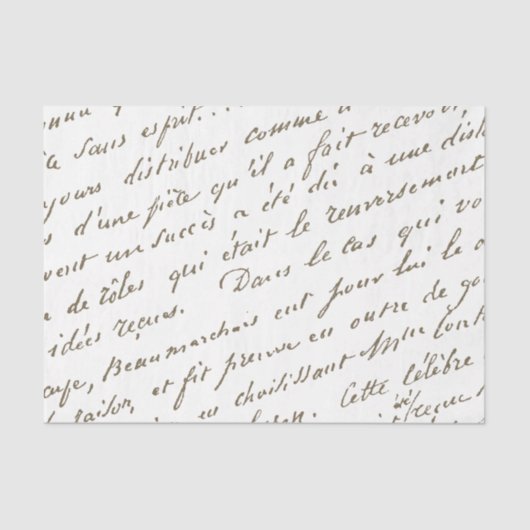 sans esprit...
distribuer comme
d'une pièce qu'il a fait recevoir,
un succès a été dû à une dist
de rôles qui était le renversement
idées reçues. Dans le cas qui vo
Beaumarchais eut pour lui le
raison, et fit preuve en outre de go
en choisissant Mlle Conta
Cette célèbre
été reçue